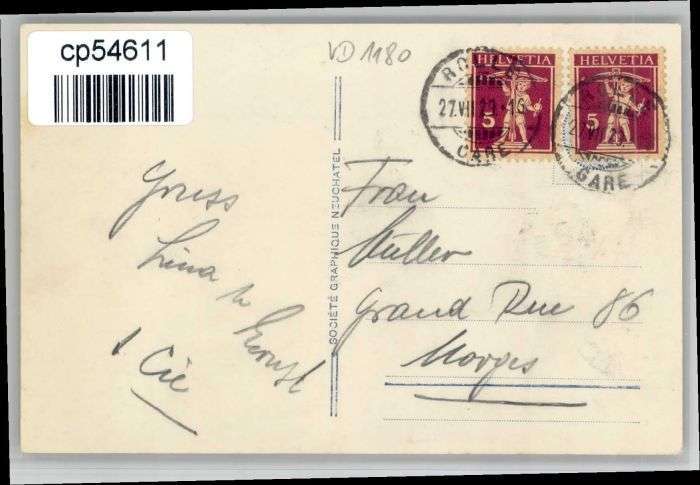 cp54611
VD 1180
HELVETIA
5
HELVETIA
5
ROLLE
27.VII.29.-16
GARE
GARE
Gruss
Lina &
Ernst
& Cie
SOCIÉTÉ GRAPHIQUE NEUCHATEL
Frau
Müller
Grand Rue 86
Morges